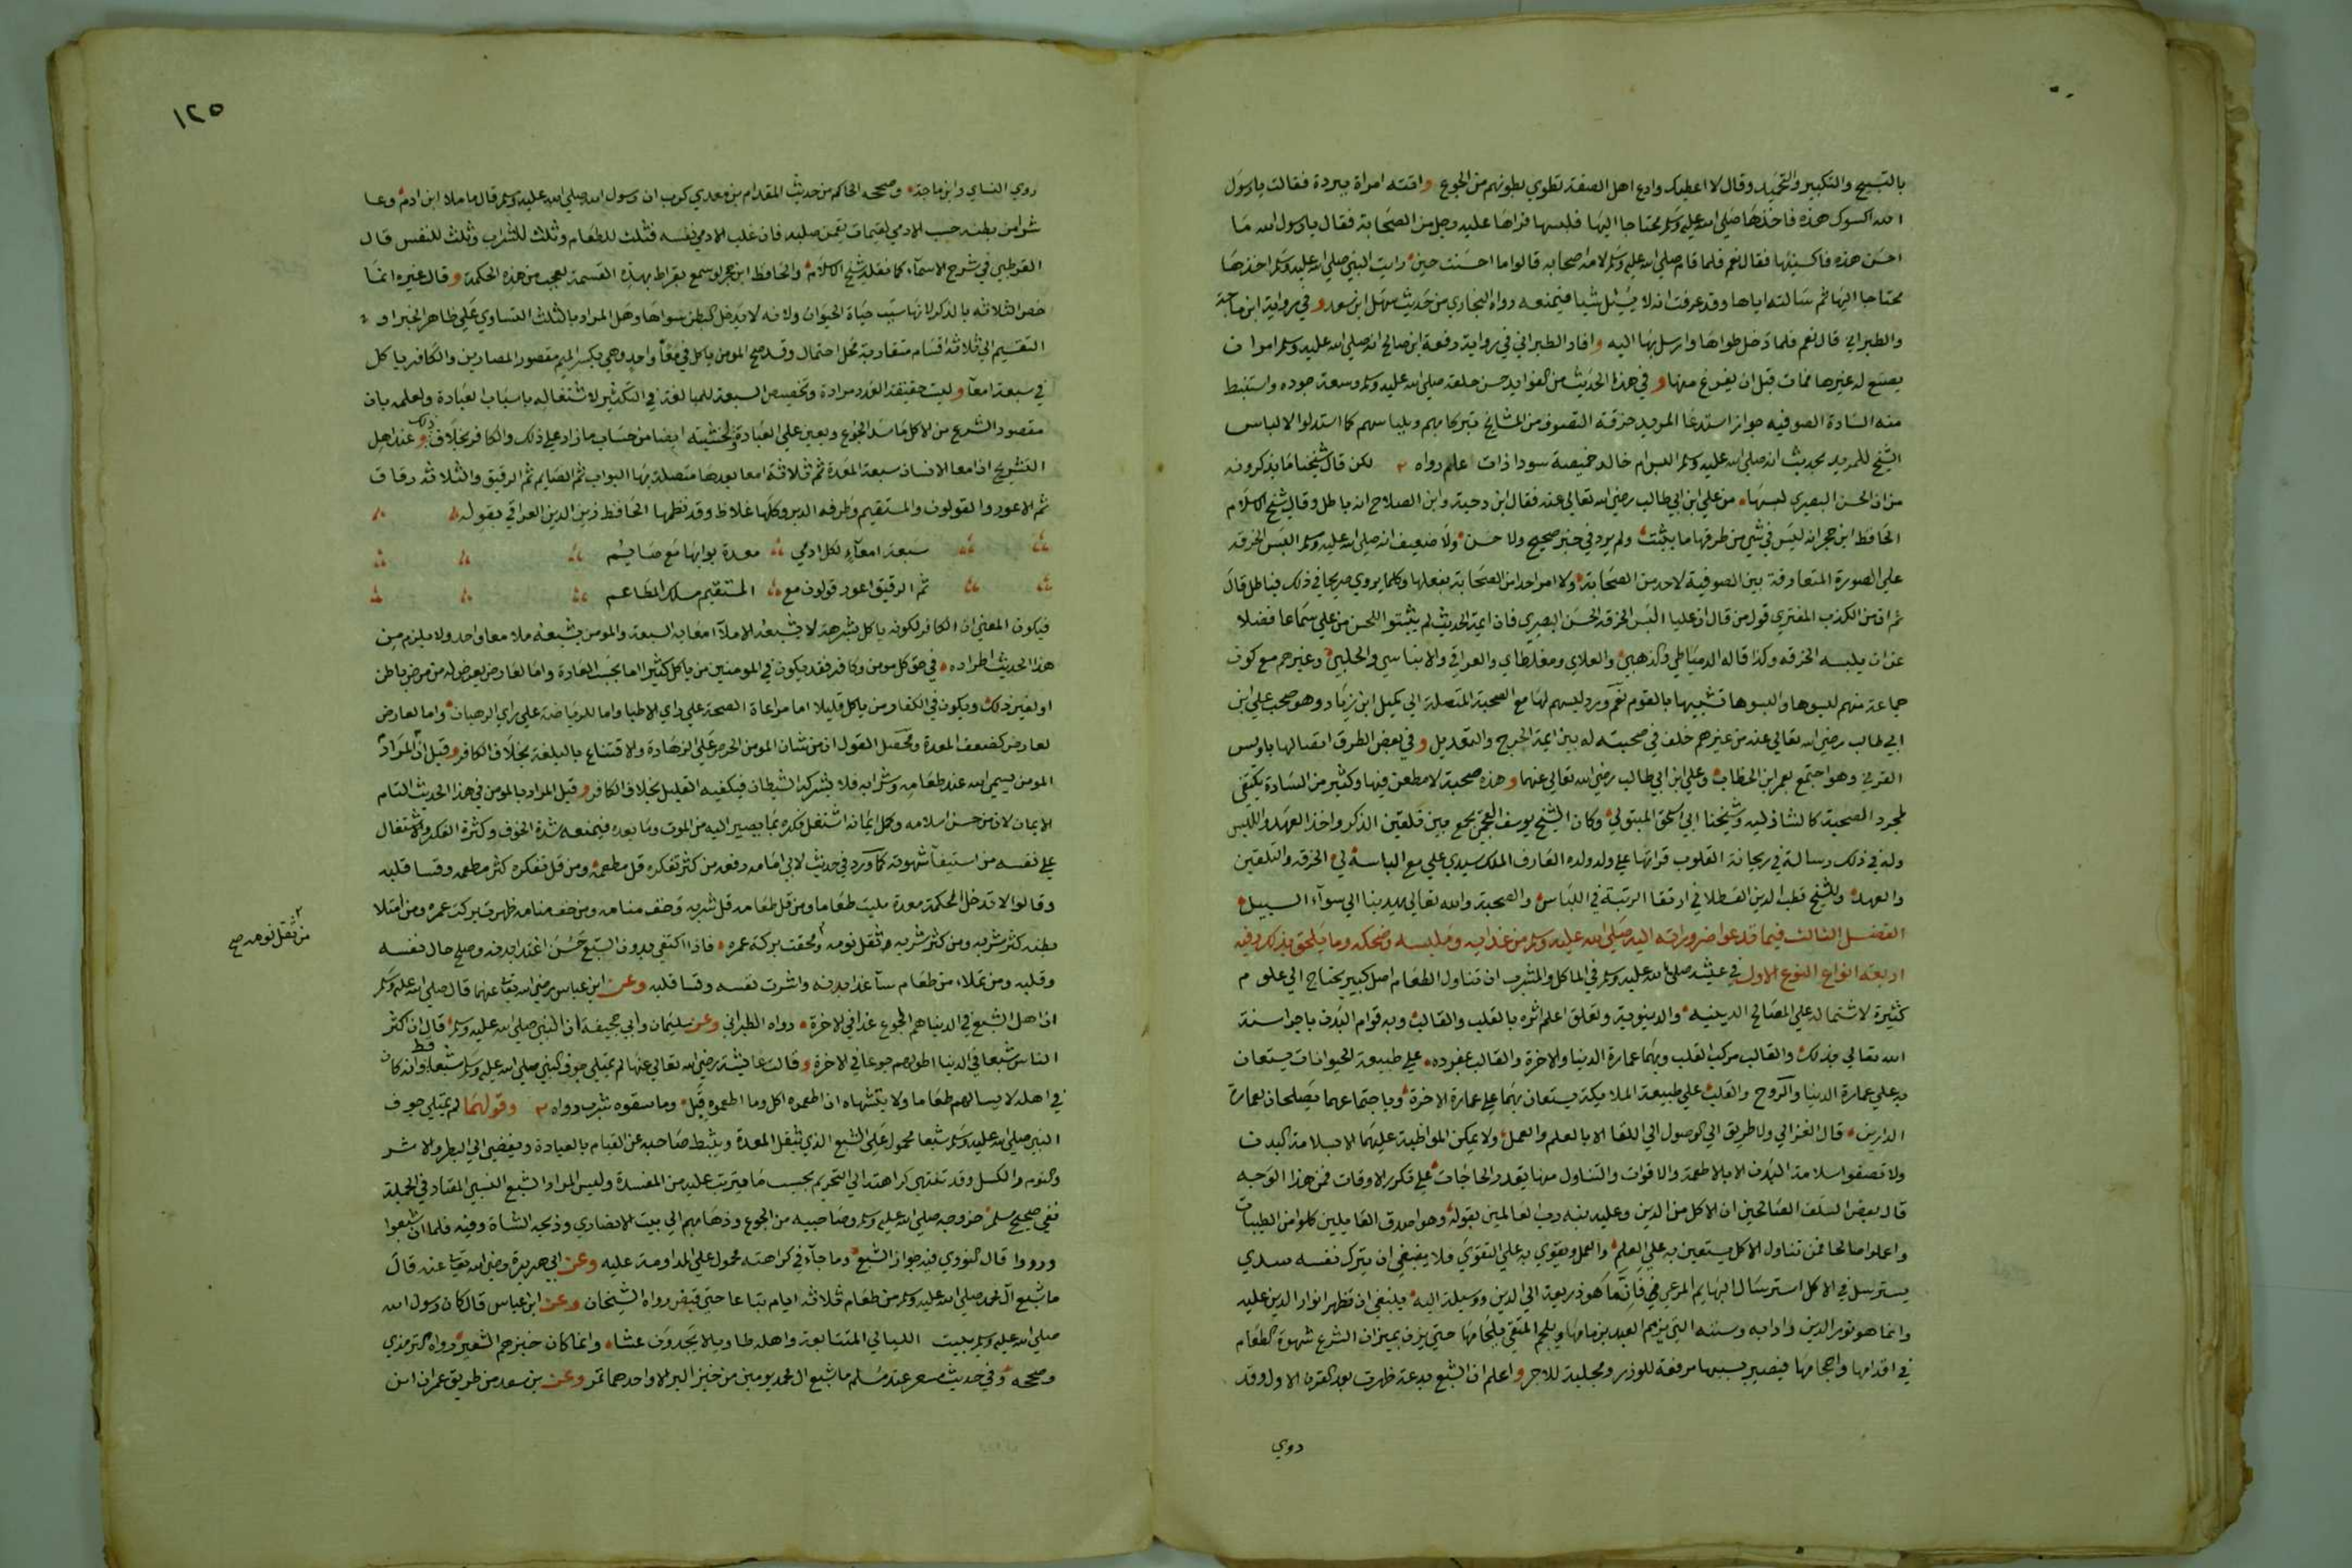 بالتسبيح والتكبير والتحميد وقال لا اعطيك وادع اهل الصفة تطوي بطونهم من الجوع واتته امراة ببردة فقالت يا رسول
الله اكسوك هذه فاخذها صلى الله عليه وسلم محتاجا اليها فلبسها فراها عليه رجل من الصحابة فقال يا رسول الله ما
احسن هذه فاكسنيها فقال نعم فلما قام صلى الله عليه وسلم لامه اصحابه قالوا ما احسنت حين رايت النبي صلى الله عليه وسلم اخذها
محتاجا اليها ثم سالته اياها وقد عرفت انه لا يسئل شيا فيمنعه رواه البخاري من حديث سهل ابن سعد وفي رواية ابن ماجة
والطبراني قال نعم فلما دخل طواها وارسل بها اليه وافاد الطبراني في رواية زمعة ابن صالح انه صلى الله عليه وسلم امر ان
يصنع له غيرها فمات قبل ان يفرغ منها وفي هذا الحديث من الفوايد حسن خلقه صلى الله عليه وسلم وسعة جوده واستنبط
منه السادة الصوفيه جواز استدعا المريد خرقة التصوف من المشايخ تبركا بهم وبلباسهم كما استدلوا لالباس
الشيخ للمريد بحديث انه صلى الله عليه وسلم البس ام خالد خميصة سودا ذات علم رواه لكن قال شيخنا ما يذكرونه
من ان الحسن البصري لبسها من علي ابن ابي طالب رضي الله تعالى عنه فقال ابن دحية وابن الصلاح انه باطل وقال شيخ الاسلام
الحافظ ابن حجر انه ليس في شي من طرقها ما يثبت ولم يرد في خبر صحيح ولا حسن ولا ضعيف انه صلى الله عليه وسلم البس الخرقة
على الصورة المتعارفة بين الصوفية لاحد من الصحابة ولا امر احدا من الصحابة بفعلها وكلما يروي صريحا في ذلك فباطل قال
ثم ان من الكذب المفتري قول من قال ان عليا البس الخرقة الحسن البصري فان ايمة الحديث لم يثبتوا للحسن من علي سماعا فضلا
عن ان يلبسه الخرقه وكذا قاله الدمياطي والذهبي والعلاي ومغلطاي والعراقي والابناسي والحلبي وغيرهم مع كون
جماعة منهم لبسوها والبسوها تشبيها بالقوم نعم ورد لبسهم لها مع الصحبة المتصلة الى كميل ابن زياد وهو صحب علي ابن
ابي طالب رضي الله تعالى عنه من غير هم خلف في صحبته له بين ايمة الجرح والتعديل وفي بعض الطرق اتصالها باويس
القرني وهو اجتمع بعمر ابن الخطاب وعلي ابن ابي طالب رضي الله تعالى عنهما وهذه صحبة لا مطعن فيها وكثير من السادة يكتفي
لمجرد الصحبة كالشاذليه وشيخنا ابي اسحق المتبولي وكان الشيخ يوسف العجمي يجمع بين تلقين الذكر واخذ العهد واللبس
وله في ذلك رسالة في ريحانة القلوب قراتها على ولد ولده العارف الملك سيدي علي مع الباسه لي الخرقة والتلقين
والعهد وللشيخ قطب الدين القسطلاني ارتقا الرتبة في اللباس والصحبة والله تعالى يهدينا الى سوآء السبيل
الفصل الثالث فيما تدعوا ضروراته اليه صلى الله عليه وسلم من غذايه وملبسه ومنكحه وما يلحق بذلك وفيه
اربعة انواع النوع الاول في عيشه صلى الله عليه وسلم في الماكل والمشرب ان تناول الطعام اصل كبير يحتاج الى علوم
كثيرة لاشتماله على المصالح الدينيه والدينوية وتعلق اعلم اثره بالقلب والقالب وبه قوام البدن باجرا سنة
الله تعالى بذلك والقالب مركب القلب وبهما عمارة الدنيا والاخرة والقالب بمفرده على طبيعة الحيوانات يستعان
به على عمارة الدنيا والروح والقلب على طبيعة الملايكة يستعان بهما على عمارة الاخرة وباجتماعهما يصلحان لعمارة
الدارين قال الغزالي ولا طريق الى الوصول الى اللقا الا بالعلم والعمل ولا يمكن المواظبة عليهما الا بسلامة البدن
ولا تصفوا سلامة البدن الا بالاطعمة والاقوات والتناول منها بقدر الحاجات على تكرر الاوقات فمن هذا الوجه
قال بعض السلف الصالحين ان الاكل من الدين وعليه نبه رب العالمين بقوله وهو اصدق القايلين كلوا من الطيبات
واعملوا صالحا فمن تناول الاكل يستعين به على العلم والعمل ويقوي به على التقوي فلا ينبغي ان يترك نفسه سدي
يسترسل في الاكل استرسال البهايم المرعى فانما هو ذريعة الى الدين ووسيلة اليه فينبغي ان تظهر انوار الدين عليه
وانما هو نور الدين وادابه وسننه التي يزم العبد بزمامها ويلجم المتقي بلجامها حتى يزن بميزان الشرع شهوة الطعام
في اقدامها واحجامها فيصير بسببها مرفعة للوزر ومجلبة للاجر واعلم ان الشبع بدعة ظهرت بعد القرن الاول وقد
روي
١٢٥
روي النساي وابن ماجة وصححه الحاكم من حديث المقدام بن معدي كرب ان رسول الله صلى الله عليه وسلم قال ما ملا ابن ادم وعا
شرا من بطنه حسب الادمي لقيمات يقمن صلبه فان غلب الادمي نفسه فثلث للطعام وثلث للشراب وثلث للنفس قال
القرطبي في شرح الاسمآء كما نقله شيخ الاسلام والحافظ ابن حجر لو سمع بقراط بهذه القسمة لعجب من هذه الحكمة وقال غيره انما
خص الثلاثه بالذكر لانها سبب حياة الحيوان ولانه لا يدخل البطن سواها وهل المراد بالثلث التساوي على ظاهر الخبر او
التقسيم الى ثلاثة اقسام متقاربة محل احتمال وقد صح المومن ياكل في معآ واحد وهي بكسر الميم مقصور المصارين والكافر ياكل
في سبعة امعآ وليست حقيقة العدد مرادة وتخصيص السبعة للمبالغة في التكثير لاشتغاله باسباب العبادة ولعلمه بان
مقصود الشرع من الاكل ما سد الجوع ويعين على العبادة ولخشيته ايضا من حساب ما زاد على ذلك والكافر بخلاف ذلك وعند اهل
التشريح ان امعا الانسان سبعة المعدة ثم ثلاثة امعا بعدها متصلة بها البواب ثم الصايم ثم الرقيق والثلاثة رقاق
ثم الاعور والقولون والمستقيم وطرفه الدبر وكلها غلاظ وقد نظمها الحافظ زين الدين العراقي بقوله
سبعة امعآءٍ لكل ادمي معدة بوابها مع صايم
ثم الرقيق اعور قولون مع المستقيم مسلك المطاعم
فيكون المعنى ان الكافر لكونه ياكل بشرهه لا يشبعه الا ملآ امعايه السبعة والمومن يشبعه ملا معا واحد ولا يلزم من
هذا الحديث اطراده في حق كل مومن وكافر فقد يكون في المومنين من ياكل كثيرا اما بحسب العادة واما لعارض يعرض له من مرض باطن
او لغير ذلك ويكون في الكفار من ياكل قليلا اما مراعاة الصحة على راي الاطبا واما للرياضة على راي الرهبان واما لعارض
لعارض كضعف المعدة ومحصل القول ان من شان المومن الحرص على الزهادة والاقتناع بالبلغة بخلاف الكافر وقيل ان المراد
المومن يسمي الله عند طعامه وشرابه فلا يشركه الشيطان فيكفيه القليل بخلاف الكافر وقيل المراد بالمومن في هذا الحديث التام
الايمان لان من حسن اسلامه وكمل ايمانه اشتغل فكره بما يصير اليه من الموت وما بعده فيمنعه شدة الخوف وكثرة الفكر والاشتغال
على نفسه من استيفآ شهوته كما ورد في حديث لابي امامه رفعه من كثر تفكره قل مطعمه ومن قل تفكره كثر مطعمه وقسا قلبه
وقالوا لا تدخل الحكمة معدة مليت طعاما ومن قل طعامه قل شربه وخف منامه ومن خف منامه ظهرت بركت عمره ومن امتلا
بطنه كثر شربه ومن كثر شربه ثقل نومه ومحقت بركة عمره فاذا اكتفي بدون الشبع حسن اغتذا بدنه وصلح حال نفسه
من ثقل نومه صح
وقلبه ومن تملاء من طعام سآ غذا بدنه واشرت نفسه وقسا قلبه وعن ابن عباس رضي الله تعالى عنهما قال صلى الله عليه وسلم
ان اهل الشبع في الدنيا هم الجوع غدا في الاخرة رواه الطبراني وعن سليمان وابي جحيفة ان النبي صلى الله عليه وسلم قال ان اكثر
الناس شبعا في الدنيا اطولهم جوعا في الاخرة وقالت عايشة رضي الله تعالى عنها لم يمتلي جوف النبي صلى الله عليه وسلم شبعا قط وانه كان
في اهله لا يسالهم طعاما ولا يتشهاه ان اطعموه اكل وما اطعموه قبل وما سقوه شرب رواه وقولها لم يمتلي جوف
النبي صلى الله عليه وسلم شبعا محمول على الشبع الذي يثقل المعدة ويثبط صاحبه عن القيام بالعبادة ويفضي الى البطر والاشر
والنوم والكسل وقد تنتهي كراهته الى التحريم بحسب ما يترتب عليه من المفسدة وليس المراد الشبع النسبي المعتاد في الجملة
ففي صحيح مسلم خروجه صلى الله عليه وسلم وصاحبيه من الجوع وذهابهم الى بيت الانصاري وذبحه الشاة وفيه فلما ان شبعوا
ورووا قال النووي فيه جواز الشبع وما جآء في كراهته محمول على المداومة عليه وعن ابي هريرة رضي الله تعالى عنه قال
ما شبع آل محمد صلى الله عليه وسلم من طعام ثلاثة ايام تباعا حتى قبض رواه الشيخان وعن ابن عباس قال كان رسول الله
صلى الله عليه وسلم يبيت الليالي المتتابعة واهله طاويا لا يجدون عشاء وانما كان خبزهم الشعير رواه الترمذي
وصححه وفي حديث مسعر عند مسلم ما شبع ال محمد يومين من خبز البر الا واحدهما تمر وعن بن سعد من طريق عمران ابن